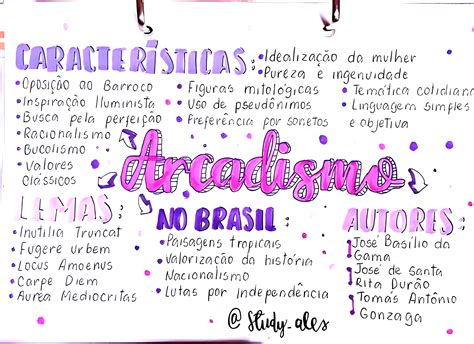 CARACTERÍSTICAS:
• Oposição ao Barroco
• Inspiração Iluminista
• Busca pela perfeição
• Racionalismo
• Bucolismo
• Valores
Clássicos
• Figuras mitológicas
• Uso de pseudônimos
• Preferência por sonetos
• Idealização da mulher
• Pureza e ingenuidade
• Temática cotidiana
• Linguagem simples
e objetiva
Arcadismo
LEMAS:
• Inutilia Truncat
• Fugere urbem
• Locus Amoenus
• Carpe Diem
• Aurea Mediocritas
NO BRASIL:
• Paisagens tropicais
• Valorização da história
• Nacionalismo
• Lutas por independência
AUTORES:
José Basílio da
Gama
José de santa
Rita Durão
Tomás Antônio
Gonzaga
@study_ales